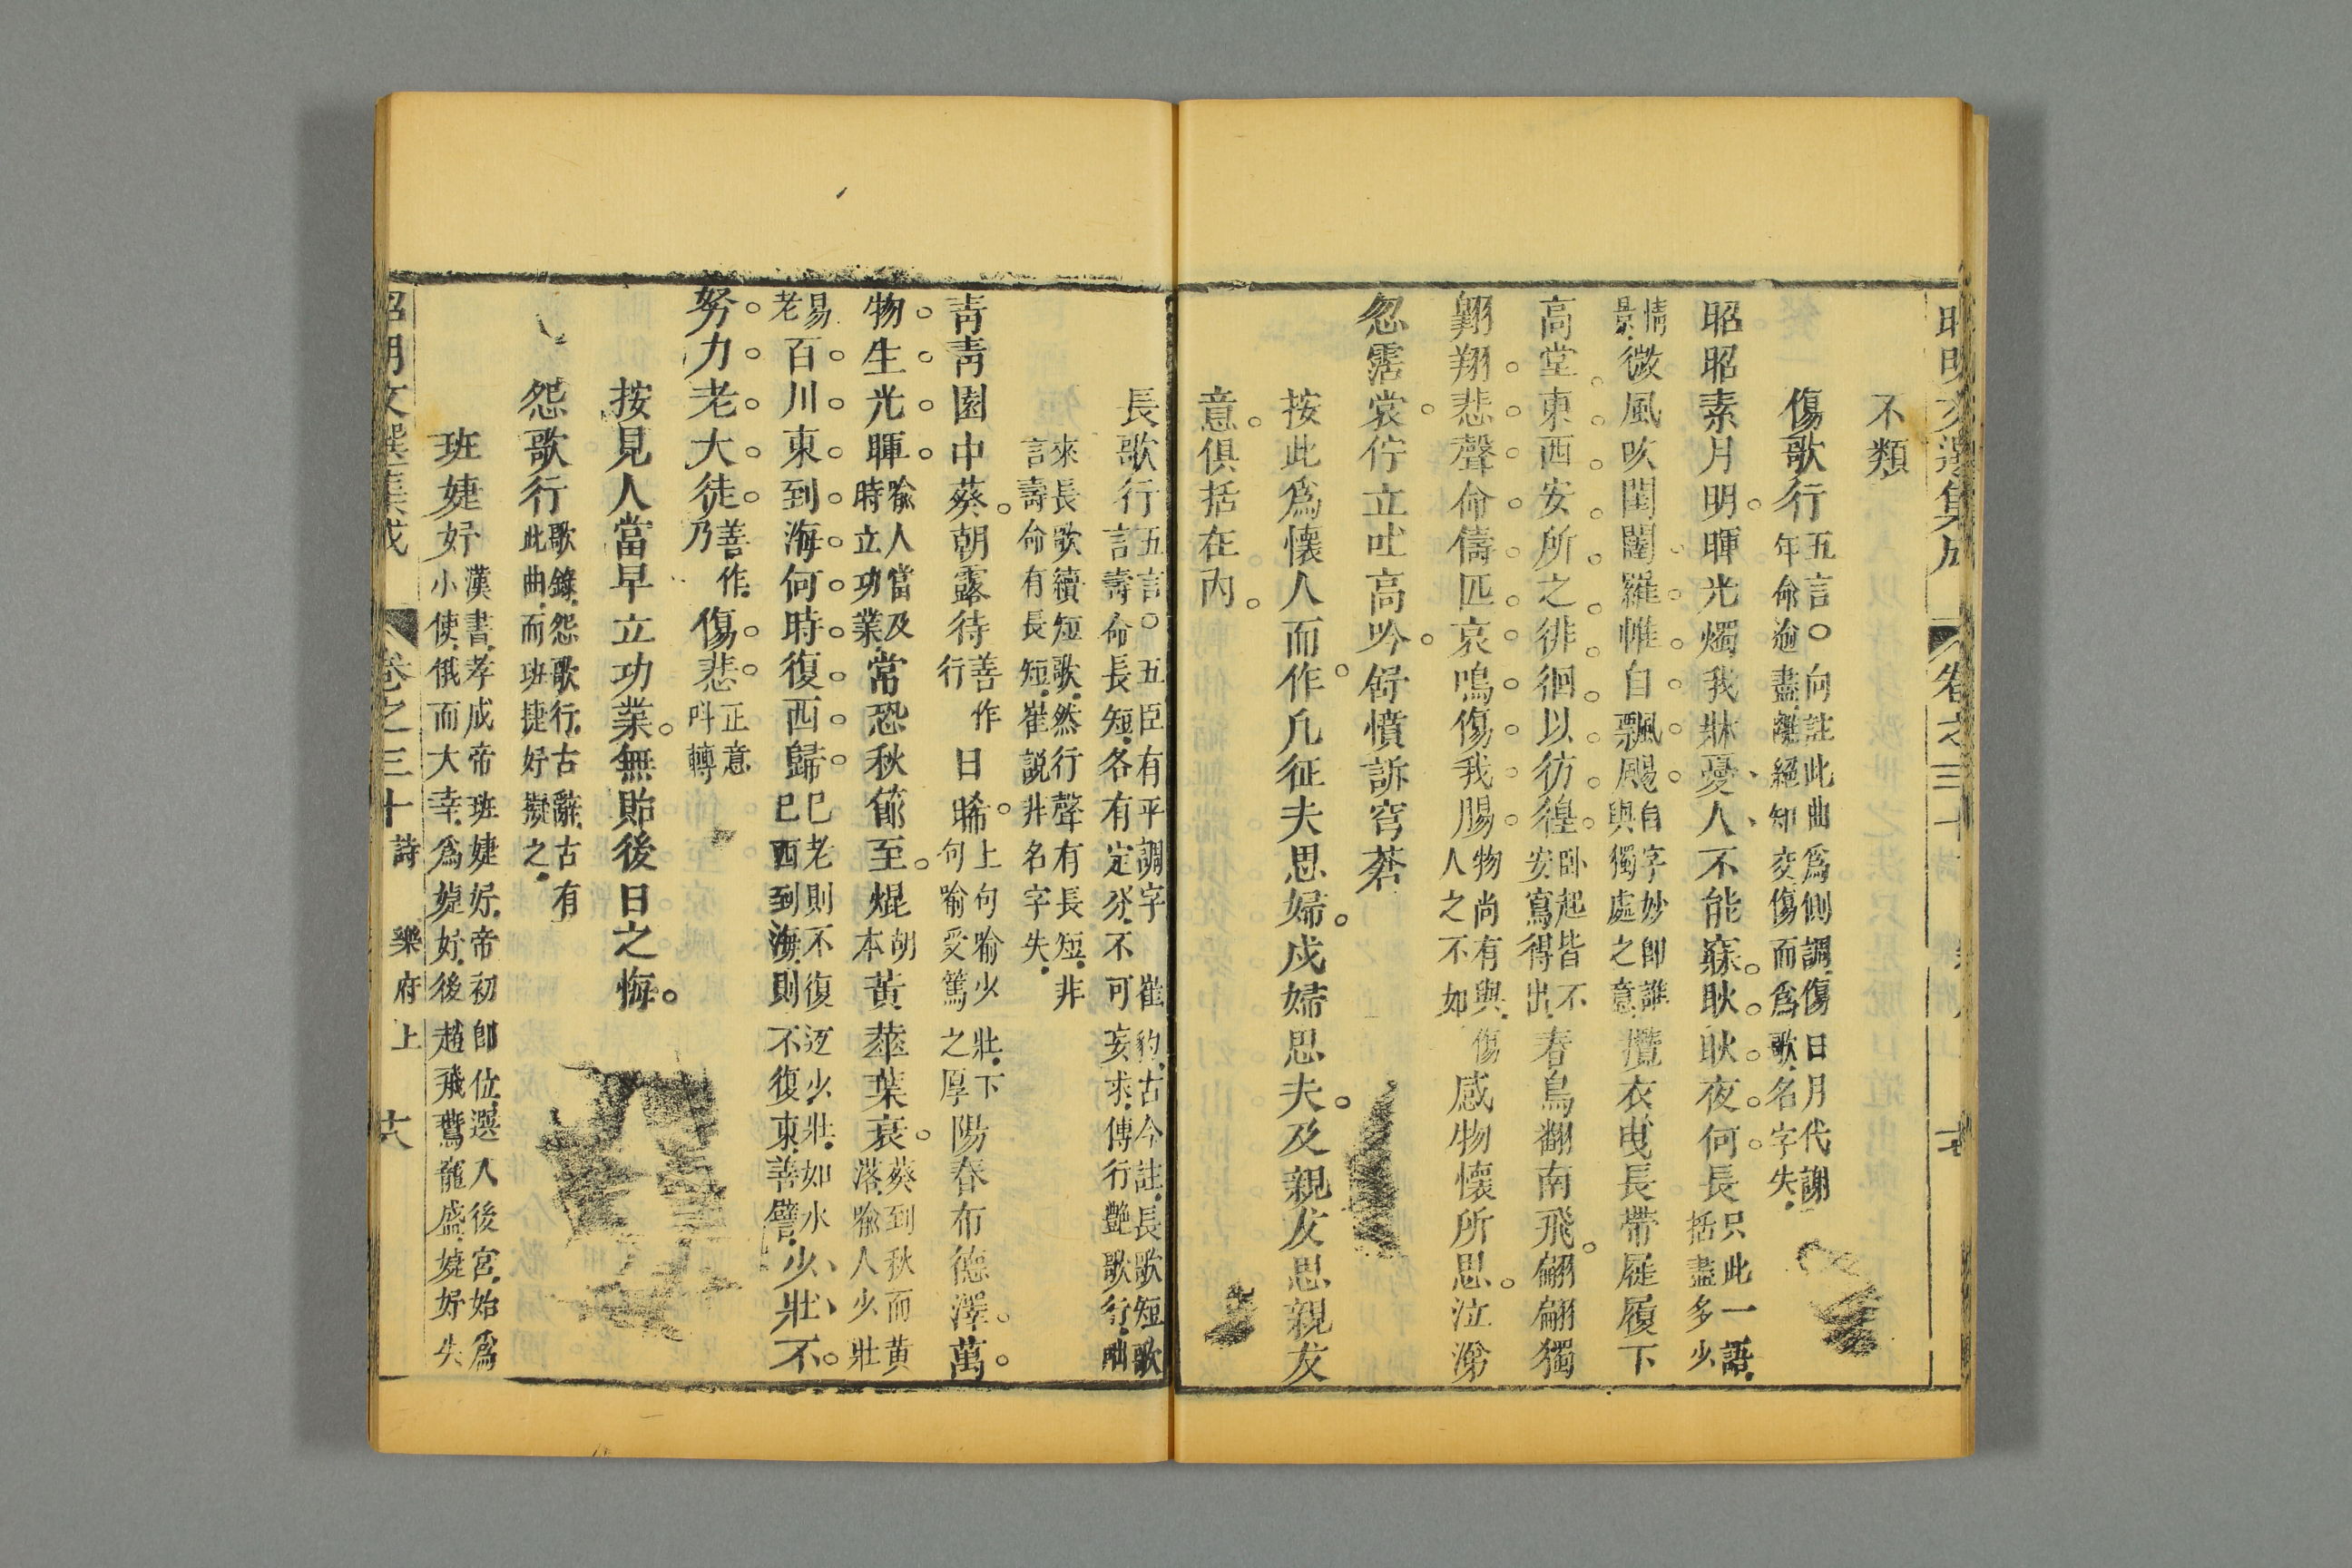 昭明文選集成 卷之三十
不類
傷歌行五言○向註此曲爲側調傷日月代謝
年命遒盡離絕知交傷而爲歌名字失
昭昭素月明暉光燭我牀憂人不能寐耿耿夜何長只此一語
括盡多少
情
景微風吹閨闥羅帷自飄颺自字妙卽誰
與獨處之意攬衣曵長帶屣履下
高堂東西安所之徘徊以彷徨卧起皆不
安寫得出春鳥翻南飛翩翩獨
翺翔悲聲命儔匹哀鳴傷我腸物尚有與
人之不如傷感物懷所思泣涕
忽霑裳佇立吐高吟舒憤訴穹蒼
按此爲懷人而作凡征夫思婦戍婦思夫及親友思親友
意俱括在內
長歌行五言○五臣有平調字 崔豹古今註長歌短歌
言壽命長短各有定分不可妄求傳行艶歌行
來長歌續短歌然行聲有長短非
言壽命有長短崔説非名字失
青青園中葵朝露待善作
行日晞上句喻少壯下
句喻受篤之厚陽春布德澤萬
物生光暉喩人當及
時立功業常恐秋節至焜胡
本黃蘂葉衰葵到秋而黃
落喩人少壯
易
老百川東到海何時復西歸已老則不復返少壯如水
已西到海則不復東善譬少壯不
努力老大徒善作
乃傷悲正意
呌轉
按見人當早立功業無貽後日之悔
怨歌行歌錄怨歌行古辭古有
此曲而班捷好擬之
班婕妤漢書孝成帝班婕妤帝初卽位選入後宮始爲
小使俄而大幸爲婕妤後趙飛鷰寵盛婕妤失
昭明文選集成 卷之三十 詩 樂府上 大